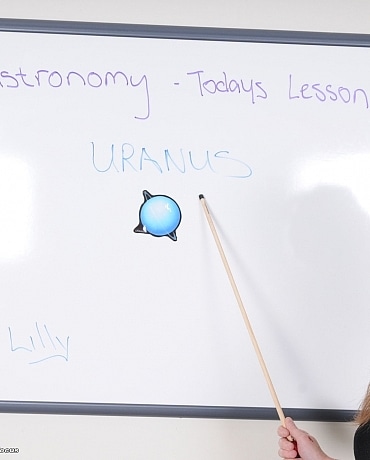 stronomy - Todays Lesson
URANUS
Lilly
ocus